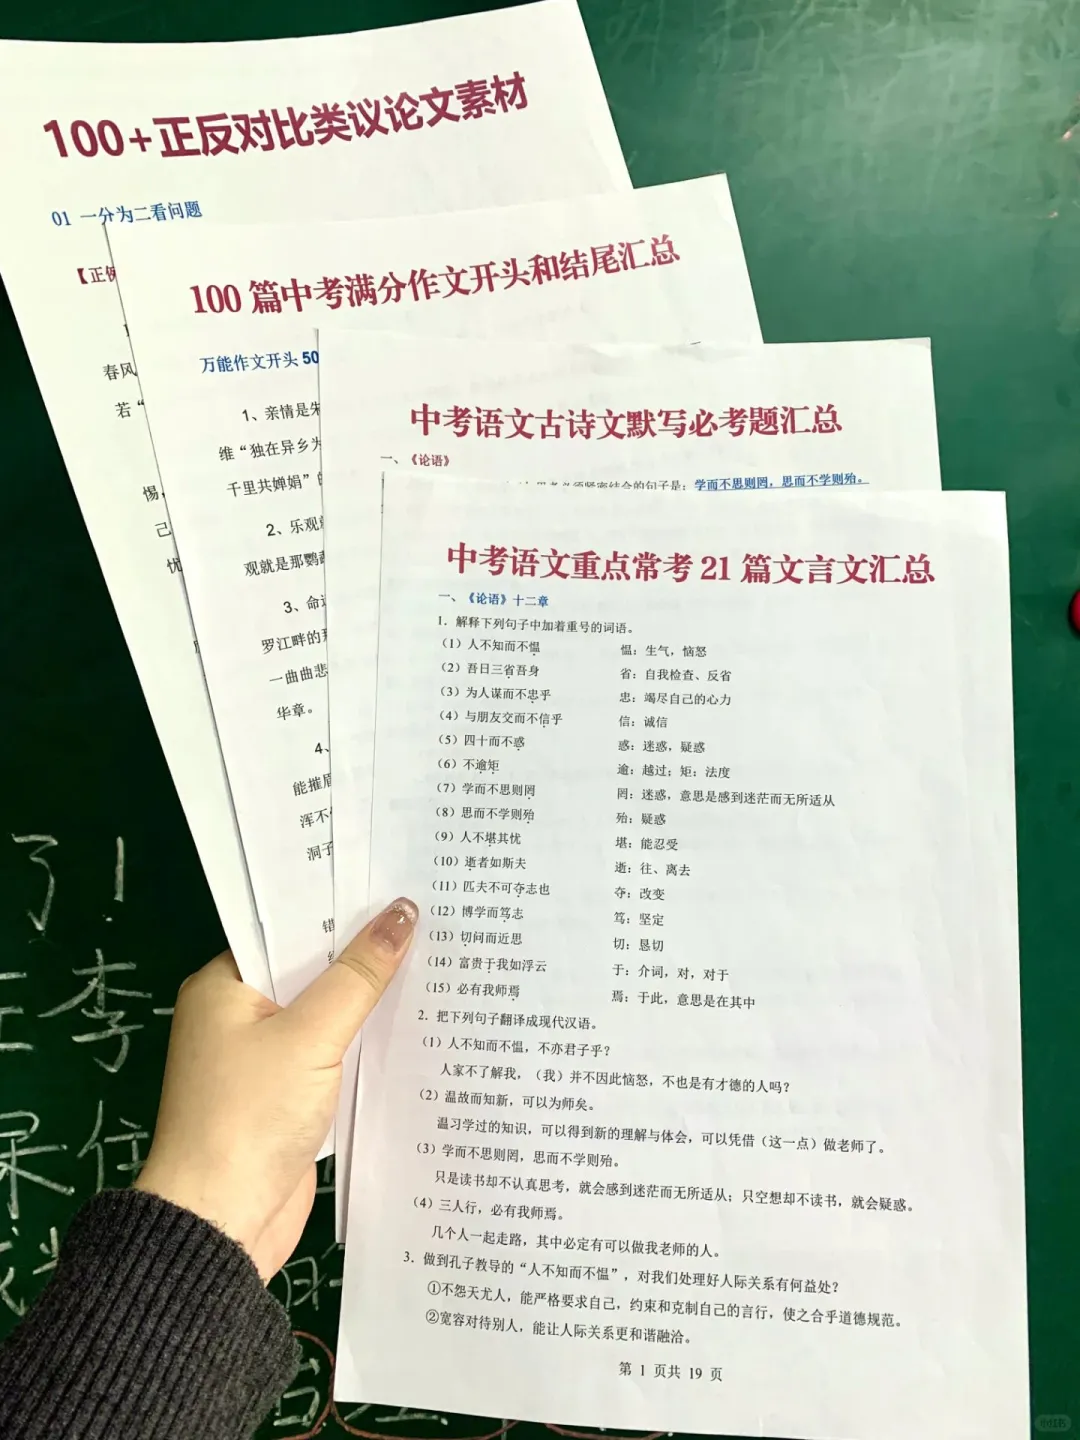 100+正反对比类议论文素材
01 一分为二看问题
【正例
春风
若“
惕，
己
忧
100 篇中考满分作文开头和结尾汇总
万能作文开头 50
1、亲情是朱
维“独在异乡为
千里共婵娟”的
2、乐观就
观就是那鹦鹉
3、命运
罗江畔的那
一曲曲悲
华章。
4、
能摧眉
浑不似
洞子
错
中考语文古诗文默写必考题汇总
一、《论语》
学而不思则罔，思而不学则殆。
中考语文重点常考 21 篇文言文汇总
一、《论语》十二章
1．解释下列句子中加着重号的词语。
（1）人不知而不愠 愠：生气，恼怒
（2）吾日三省吾身 省：自我检查、反省
（3）为人谋而不忠乎 忠：竭尽自己的心力
（4）与朋友交而不信乎 信：诚信
（5）四十而不惑 惑：迷惑，疑惑
（6）不逾矩 逾：越过；矩：法度
（7）学而不思则罔 罔：迷惑，意思是感到迷茫而无所适从
（8）思而不学则殆 殆：疑惑
（9）人不堪其忧 堪：能忍受
（10）逝者如斯夫 逝：往、离去
（11）匹夫不可夺志也 夺：改变
（12）博学而笃志 笃：坚定
（13）切问而近思 切：恳切
（14）富贵于我如浮云 于：介词，对，对于
（15）必有我师焉 焉：于此，意思是在其中
2．把下列句子翻译成现代汉语。
（1）人不知而不愠，不亦君子乎？
人家不了解我，（我）并不因此恼怒，不也是有才德的人吗？
（2）温故而知新，可以为师矣。
温习学过的知识，可以得到新的理解与体会，可以凭借（这一点）做老师了。
（3）学而不思则罔，思而不学则殆。
只是读书却不认真思考，就会感到迷茫而无所适从；只空想却不读书，就会疑惑。
（4）三人行，必有我师焉。
几个人一起走路，其中必定有可以做我老师的人。
3．做到孔子教导的“人不知而不愠”，对我们处理好人际关系有何益处？
①不怨天尤人，能严格要求自己，约束和克制自己的言行，使之合乎道德规范。
②宽容对待别人，能让人际关系更和谐融洽。
第 1 页共 19 页
了！
李
住